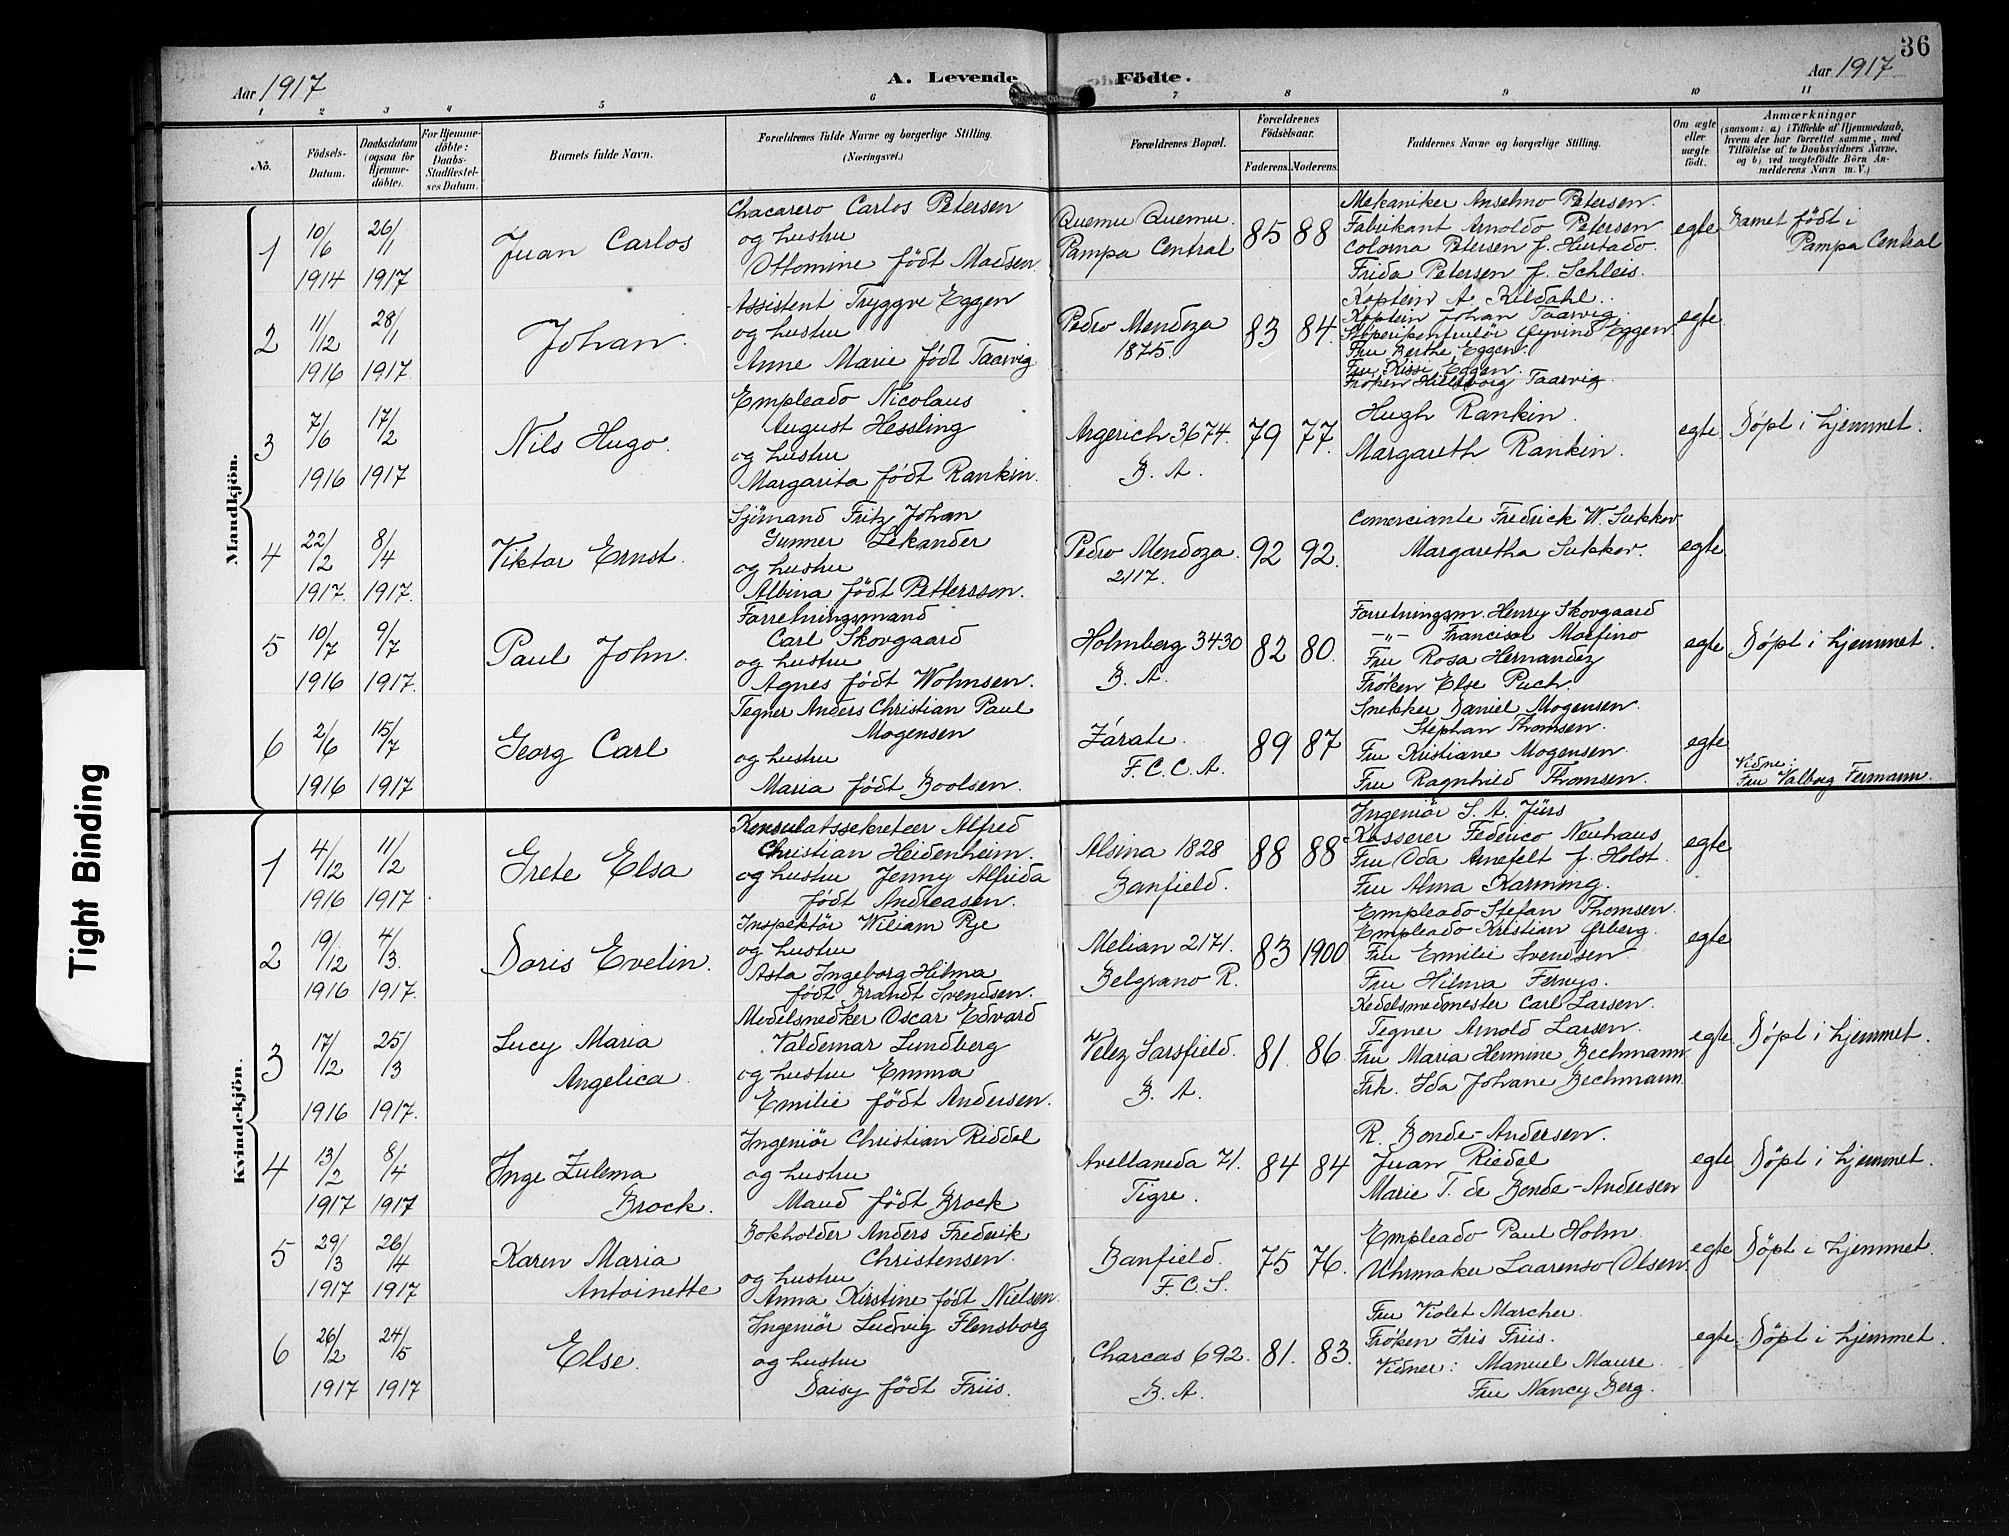 36
Aar 1917
A. Levende Födte.
Aar 1917
1 2 3 4 5 6 7 8 9 10 11
No.
Födsels-Datum.
Daabsdatum (ogsaa for Hjemme-döbte).
For Hjemme-döbte: Daabs-Stadfæstel-ses Datum.
Barnets fulde Navn.
Forældrenes fulde Navne og borgerlige Stilling. (Næringsvei.)
Forældrenes Bopæl.
Forældrenes Födselsaar.
Faderens. Moderens.
Faddernes Navne og borgerlige Stilling.
Om ægte eller uægte födt.
Anmærkninger
(saasom: a) i Tilfælde af Hjemmedaab,
hvem der har forrettet samme, med
Tilföielse af to Daabsvidners Navne,
og b) ved uægtefödte Börn An-
melderens Navn m. V.)
Mandkjön.
1
10/6 1914
26/1 1917
Juan Carlos
Chacarero Carlos Petersen
og hustru
Ottomine födt Madsen
Quemu Quemu.
Pampa Central
85 88
Mekaniker Anselmo Petersen.
Fabrikant Arnoldo Petersen
Coloma Petersen f. Hurtado.
Frida Petersen f. Schleis.
egte
Barnet födt i
Pampa Central
2
11/12 1916
28/1 1917
Johan.
Assistent Tryggve Eggen
og hustru
Anne Marie födt Taarvig
Pedro Mendoza
1875.
83 84.
Kaptein A. Kildahl.
Kaptein Johan Taarvig.
Øyvind Eggen
Fru Berthe Eggen.
Fru Kisse Eggen.
Frøken Hildborg Taarvig.
egte
3
7/6 1916
17/2 1917
Nils Hugo.
Empleado Nicolaus
August Hessling
og hustru
Margarita födt Rankin.
Argerich 3674.
B. A.
79 77.
Hugh Rankin.
Margareth Rankin.
egte
Döpt i hjemmet.
4
22/2 1917.
8/4 1917.
Viktor Ernst.
Sjömand Fritz Johan
Gunner Lekander
og hustru
Albina födt Pettersson.
Pedro Mendoza.
2117.
92 92.
Comerciante Fredrick W. Sukkov
Margaretha Sukkov.
egte
5
10/7 1916
9/7 1917.
Paul John.
Forretningsmand
Carl Skovgaard
og hustru
Agnes födt Wohnsen.
Holmberg 3430
B. A.
82 80.
Forretningsm. Henry Skovgaard
-"- Francisco Morfino
Fru Rosa Hernandez
Frøken Else Puch.
egte
Döpt i hjemmet.
6
2/6 1916
15/7 1917
Georg Carl
Tegner Anders Christian Paul
Mogensen
og hustru
Maria födt Boolsen.
Zárate.
F.C.C.A.
89 87
Snekker Daniel Mogensen.
Stephan Thomsen.
Fru Kristiane Mogensen.
Fru Ragnhild Thomsen.
egte
Vidne:
Fru Valborg Fermann.
Kvindekjön.
1
4/12 1916
11/2 1917.
Grete Elsa
Konsulatssekretær Alfred
Christian Heidenheim.
og hustru Jenny Alfrida
födt Andreasen.
Alsina 1828
Banfield.
88 88
Ingeniör S. A. Jürs
Kasserer Federico Neuhaus
Fru Oda Arnefelt f. Holst.
Fru Alma Karming.
egte
2
19/12 1916
4/3. 1917.
Doris Evelin.
Inspektör Wiliam Rye
og hustru
Asta Ingeborg Hilma
födt Brandt Svendsen.
Melian 2171.
Belgrano R.
83 1900
Empleado Stefan Thomsen.
Empleado Kristian Ørberg.
Fru Emilie Svendsen
Fru Hilma Fernys.
egte
3
17/12 1916
25/3 1917.
Lucy Maria
Angelica.
Möbelsnedker Oscar Edvard
Valdemar Lundberg
og hustru Emma
Emilie födt Andersen.
Velez Sarsfield.
B. A.
81. 86
Kedelsmedmester Carl Larsen.
Tegner Arnold Larsen.
Fru Maria Hermine Bechmann
Frk. Ida Johane Bechmann.
egte
Döpt i hjemmet.
4
13/2 1917
8/4 1917
Inge Zulema
Brock.
Ingeniör Christian Riddel
og hustru
Maud födt Brock
Avellaneda 71.
Tigre.
84 84
R. Bonde-Andersen.
Juan Riedel
Marie T. de Bonde-Andersen
egte
Döpt i hjemmet.
5
29/3 1917
26/4 1917
Karen Maria
Antoinette
Bokholder Anders Frederik
Christensen.
og hustru
Anna Kirstine födt Nielsen.
Banfield.
F.C.S.
75 76.
Empleado Paul Holm.
Uhrmaker Laurenso Olsen.
egte
Döpt i hjemmet.
6
26/2 1917
24/5 1917
Else.
Ingeniör Ludvig Flensborg
og hustru
Daisy födt Friis.
Charcas 692.
B. A.
81. 83.
Fru Violet Marcher.
Frøken Iris Friis.
Vidner: Manuel Maure.
Fru Nancy Berg.
egte
Döpt i hjemmet.
Tight Binding